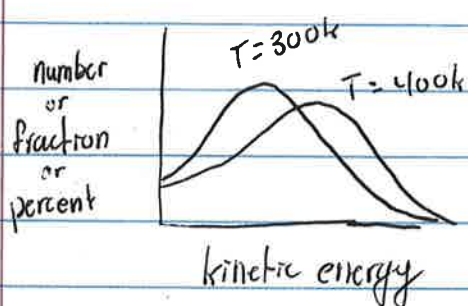 number
or
fraction
or
percent
T=300k
T=400k
kinetic energy